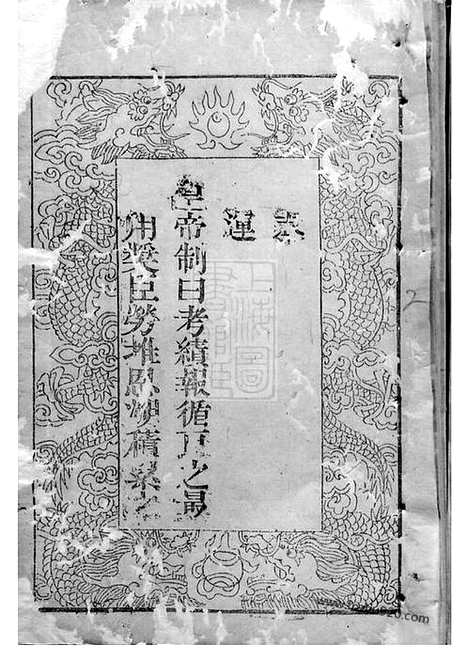 奉天
運
皇帝制曰考績報循良之最
用奬臣勞推恩溯積累之
上海圖書館藏
2